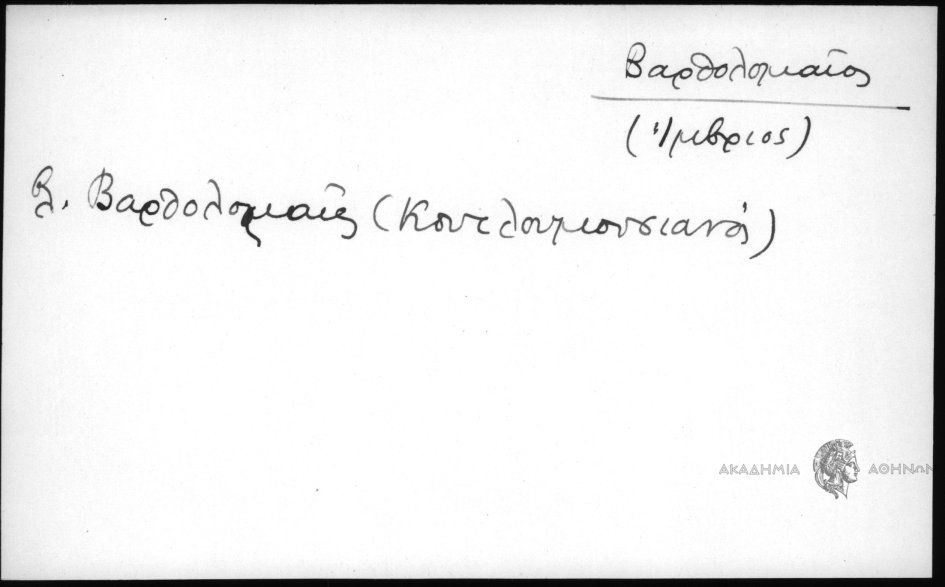 Βαρθολομαῖος
(Ἴμβριος)
Βλ. Βαρθολομαῖος (Κουτλουμουσιανός)
ΑΚΑΔΗΜΙΑ ΑΘΗΝΩΝ